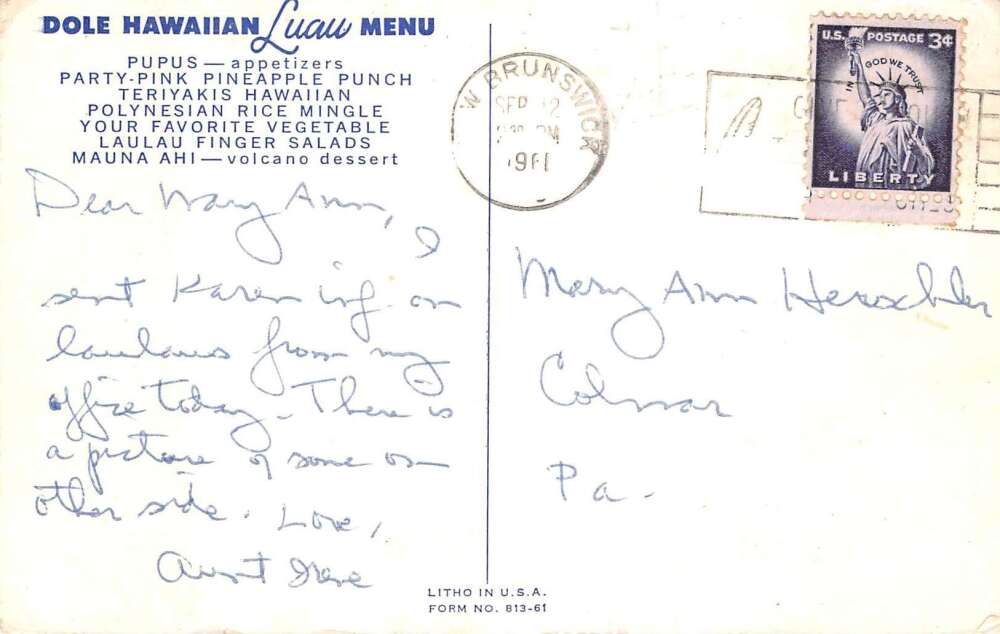 DOLE HAWAIIAN Luau MENU
PUPUS — appetizers
PARTY-PINK PINEAPPLE PUNCH
TERIYAKIS HAWAIIAN
POLYNESIAN RICE MINGLE
YOUR FAVORITE VEGETABLE
LAULAU FINGER SALADS
MAUNA AHI — volcano dessert
Dear Mary Ann,
I
sent Karen inf. on
laulaus from my
office today. There is
a picture of some on
other side. Love,
Aunt Irene
W BRUNSWICK
SEP 12
PM
1961
U.S. POSTAGE 3¢
IN GOD WE TRUST
LIBERTY
Mary Ann
Colmar
Pa.
LITHO IN U.S.A.
FORM NO. 813-61